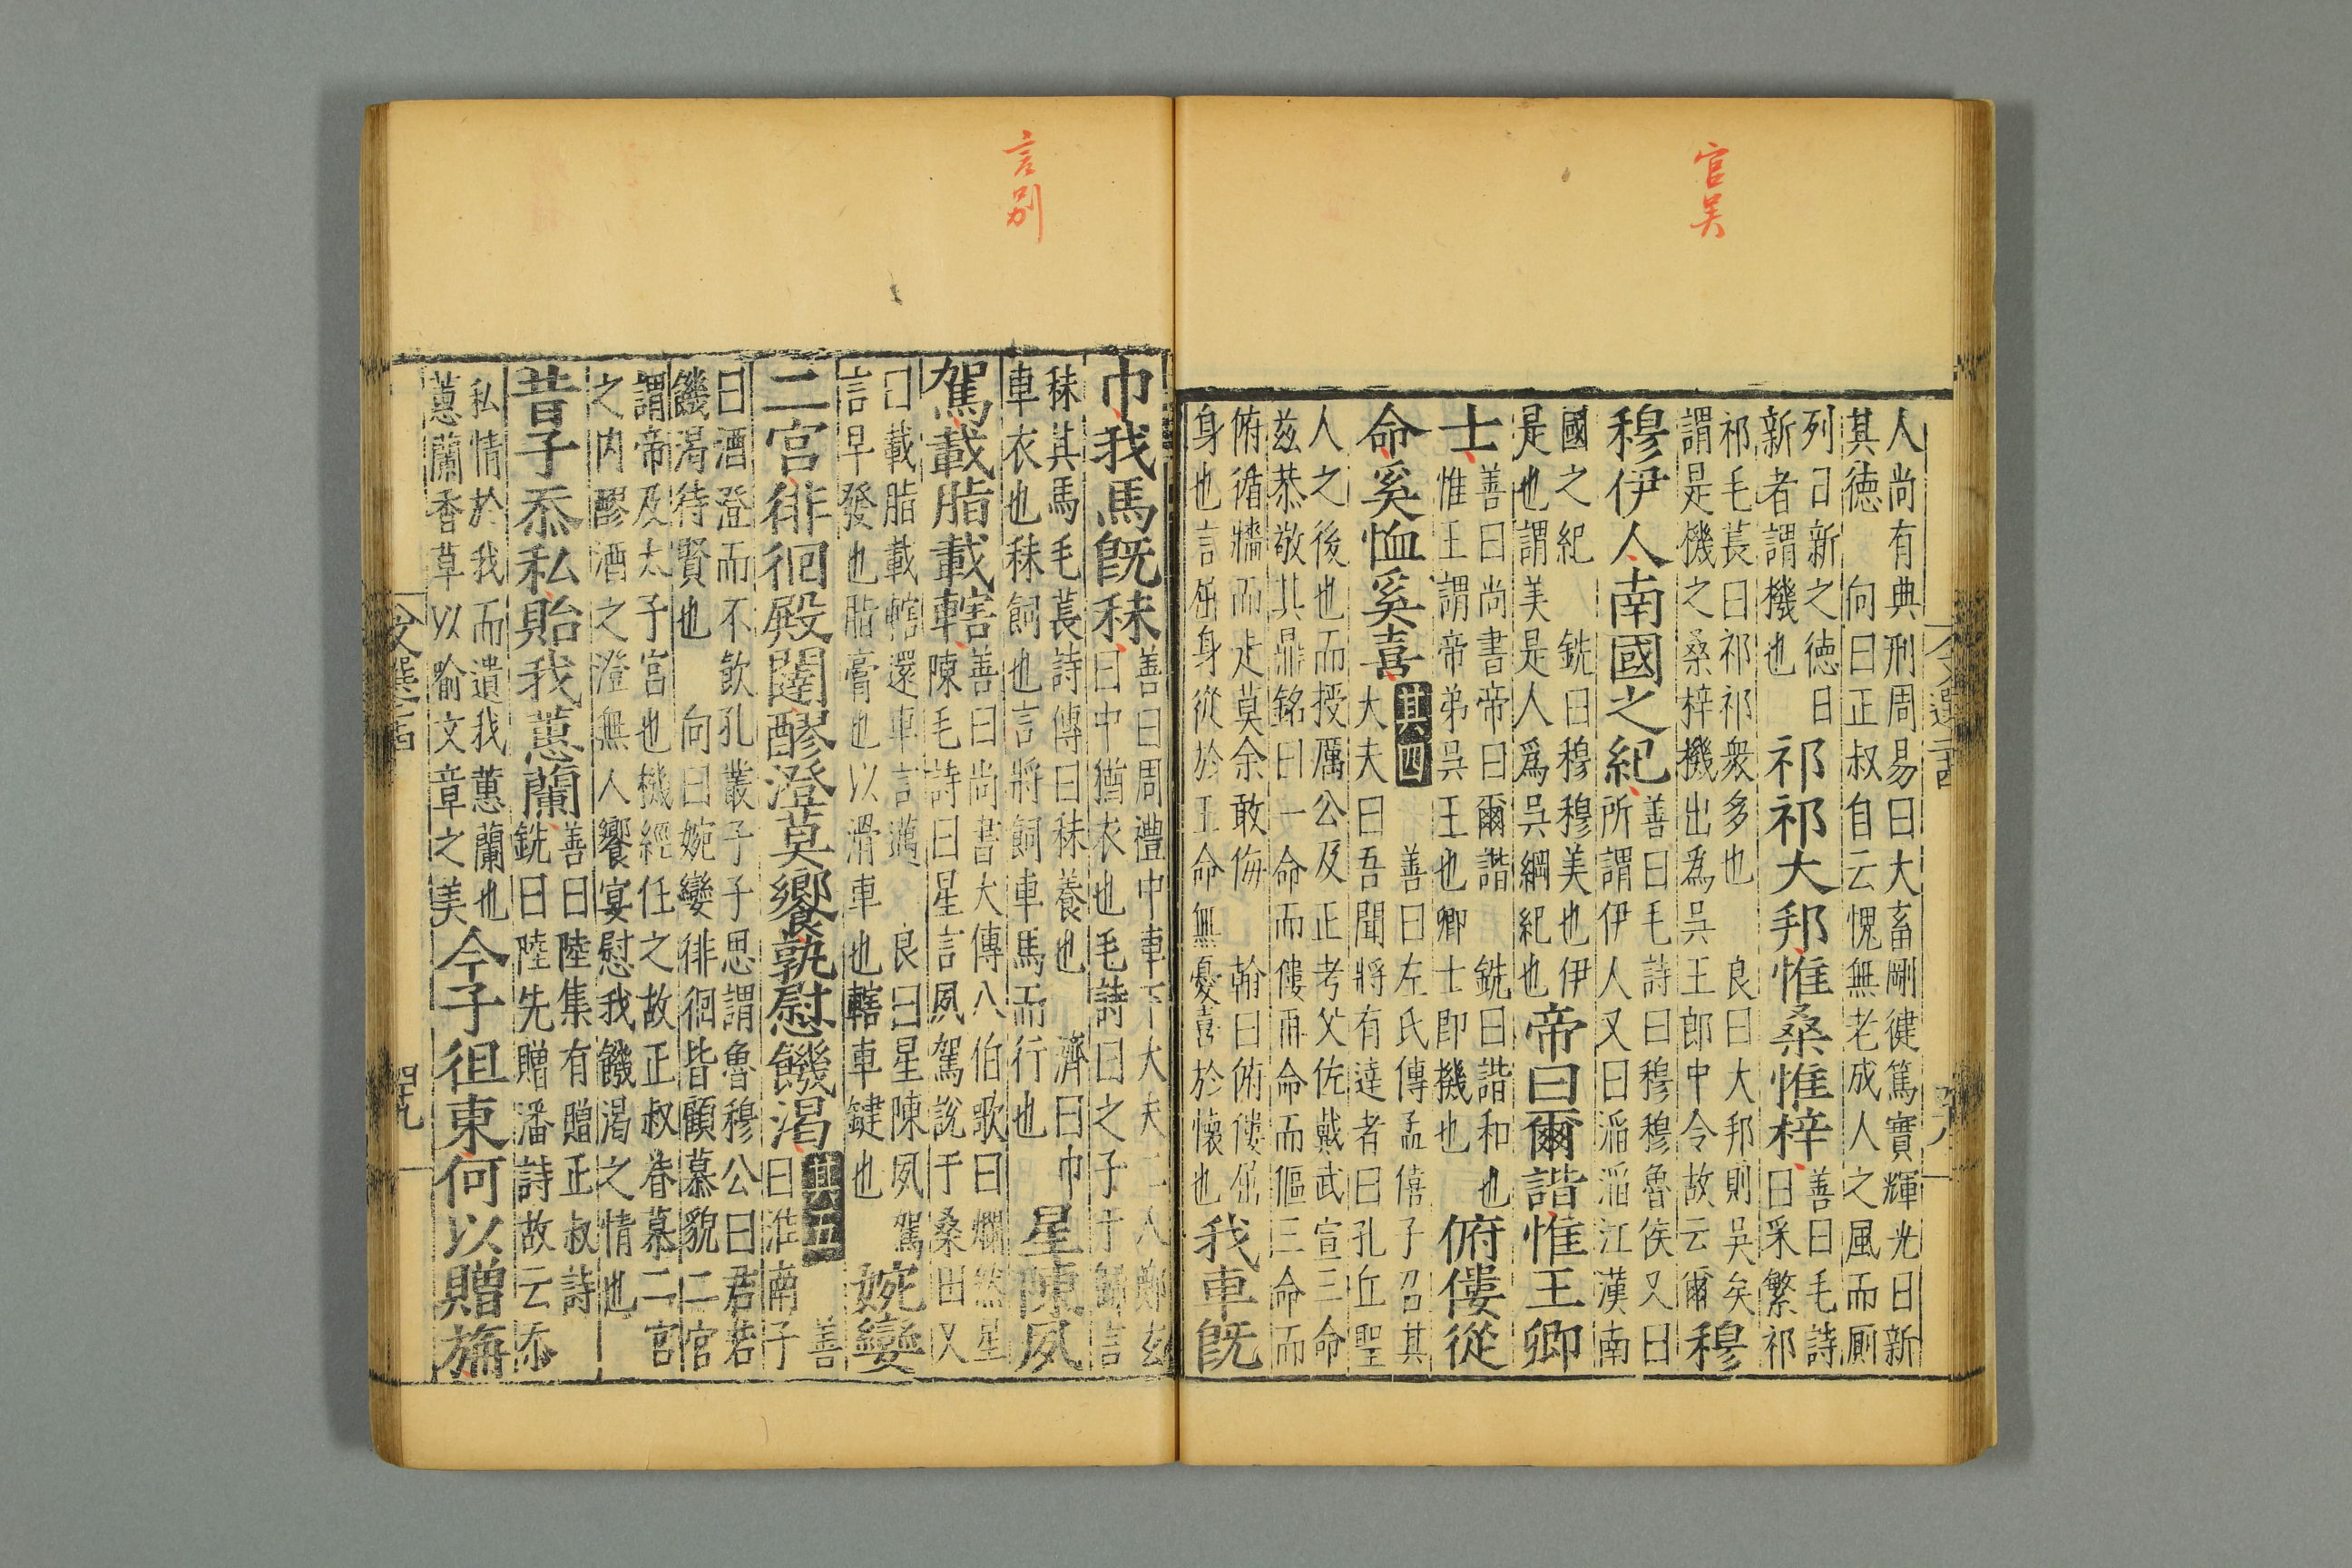 官吴
人尚有典刑周易曰大畜剛健篤實輝光日新
其德　向曰正叔自云愧無老成人之風而厠
列日新之德日
新者謂機也
祁祁大邦惟桑惟梓
善曰毛詩
曰采繁祁
祁毛萇曰祁祁衆多也　良曰大邦則吳矣
謂是機之桑梓機出爲吳王郎中令故云爾
穆
穆伊人南國之紀
善曰毛詩曰穆穆魯侯又曰
所謂伊人又曰滔滔江漢南
國之紀　銑曰穆穆美也伊
是也謂美是人爲吳綱紀也
帝曰爾諧惟王卿
士
善曰尚書帝曰爾諧　銑曰諧和也
惟王謂帝弟吳王也卿士即機也
俯僂從
命奚恤奚喜
其四
善曰左氏傳孟僖子召其
大夫曰吾聞將有達者曰孔丘聖
人之後也而授厲公及正考父佐戴武宣三命
兹恭敬其鼎銘曰一命而僂再命而傴三命而
俯循牆而走莫余敢侮　翰曰俯僂屈
身也言屈身從於王命無憂喜於懷也
我車旣
言別
巾我馬旣秣
善曰周禮中車下大夫二人鄭玄
曰中猶衣也毛詩曰之子于歸言
秣其馬毛萇詩傳曰秣養也　濟曰巾
車衣也秣飼也言將飼車馬而行也
星陳夙
駕載脂載轄
善曰尚書大傳八伯歌曰爛然星
陳毛詩曰星言夙駕說于桑田又
曰載脂載轄還車言邁　良曰星陳夙駕
言早發也脂膏也以滑車也轄車鍵也
婉孌
二宮徘徊殿闥醪澄莫饗孰慰饑渴
其五
善
曰淮南子
曰酒澄而不飲孔叢子子思謂魯穆公曰君若
饑渴待賢也　向曰婉孌徘徊皆顧慕貌二宮
謂帝及太子宮也機經任之故正叔眷慕二宮
之內醪酒之澄無人饗宴慰我饑渴之情也
昔子忝私貽我蕙蘭
善曰陸集有贈正叔詩
銑曰陸先贈潘詩故云忝
私情於我而遺我蕙蘭也
蕙蘭香草以喻文章之美
今子徂東何以贈旃